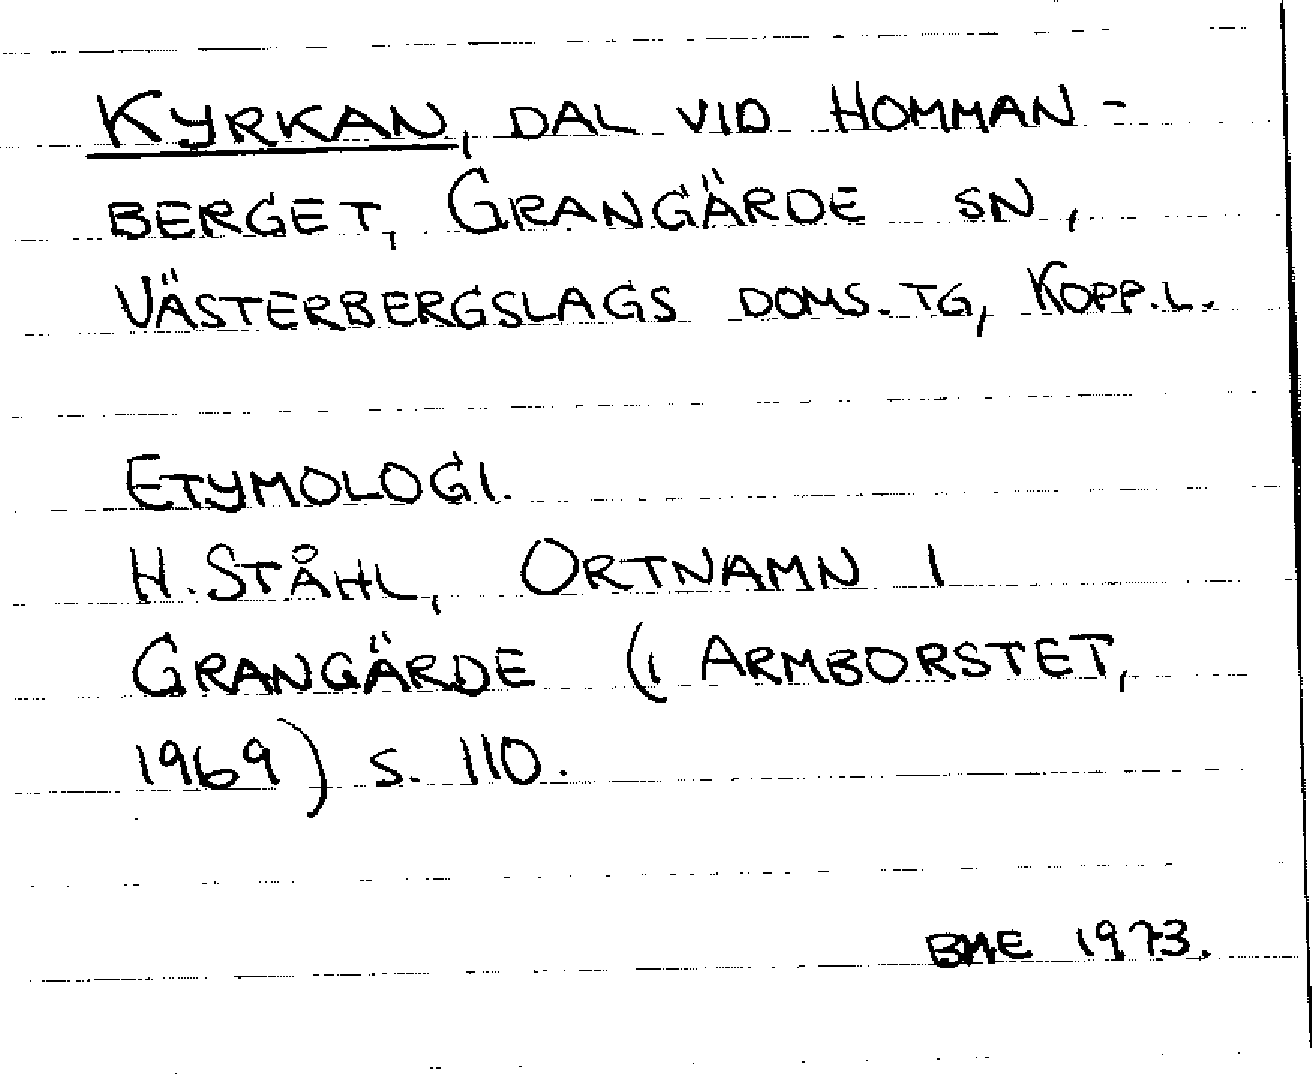 KYRKAN, DAL VID HOMMAN-
BERGET, GRANGÄRDE SN,
VÄSTERBERGSLAGS DOMS. TG, KOPP.L.
ETYMOLOGI.
H. STÅHL, ORTNAMN I
GRANGÄRDE (I ARMBORSTET,
1969) S. 110.
BME 1973.